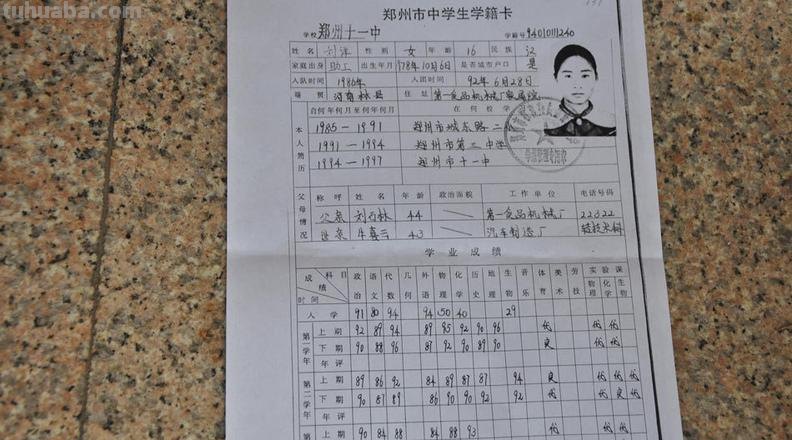 tuhuaba.com
郑州市中学生学籍卡
学校 郑州十一中 学籍号 94010111240
姓名 刘 性别 女 年龄 16 民族 汉
家庭出身 助工 出生年月 78年10月6日 是否城市户口 是
入队时间 1986年 入团时间 92年6月28日
籍贯 河南林县 住址 第一食品机械厂家属院
自何年何月至何年何月 在何校学
本人简历
1985—1991 郑州市城东路二
1991—1994 郑州市第三中学
1994—1997 郑州市十一中
父母情况
称呼 姓名 年龄 政治面貌 工作单位 电话号码
父亲 刘 林 44 第一食品机械厂 22322
母亲 牛喜 43 汽车制造厂
学业成绩
科目 政治 语文 代数 几何 外语 物理 化学 历史 地理 生物 音乐 体育 美术 劳技 实验 物理 化学 课 生物
成绩
时间
入学 91 80 94 94 50 40 29
第一学年 上期 92 89 94 89 95 92 90 96 优 优 优
下期 90 88 96 87 92 90 89 90 良 优 优
年评
第二学年 上期 89 86 92 84 89 87 87 94 良 优 优 优
下期 90 87 89 86 90 90 92 92 优 优 优 优
年评
上期 90 84 88 84 88 93 优 优 优